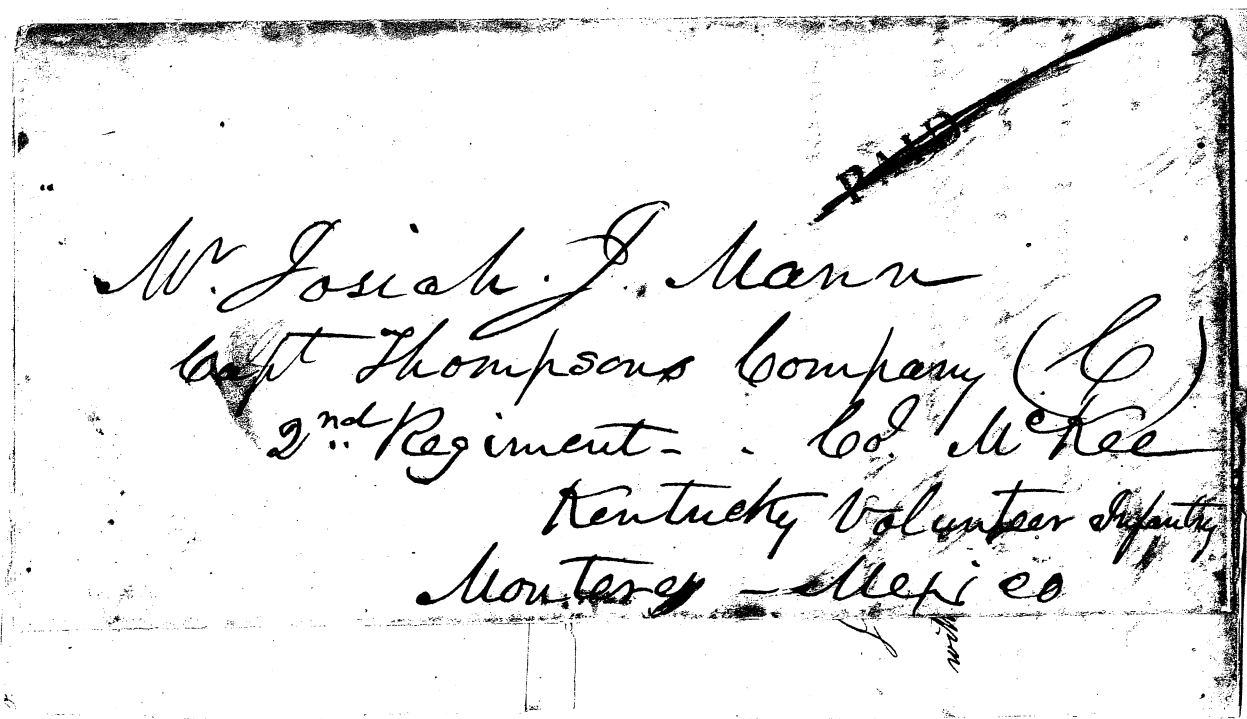 PAID
Mr. Josiah. J. Mann
Capt Thompsons Company (C)
2nd Regiment - . Col. McKee
Kentucky Volunteer Infantry
Monterey - Mexico
with